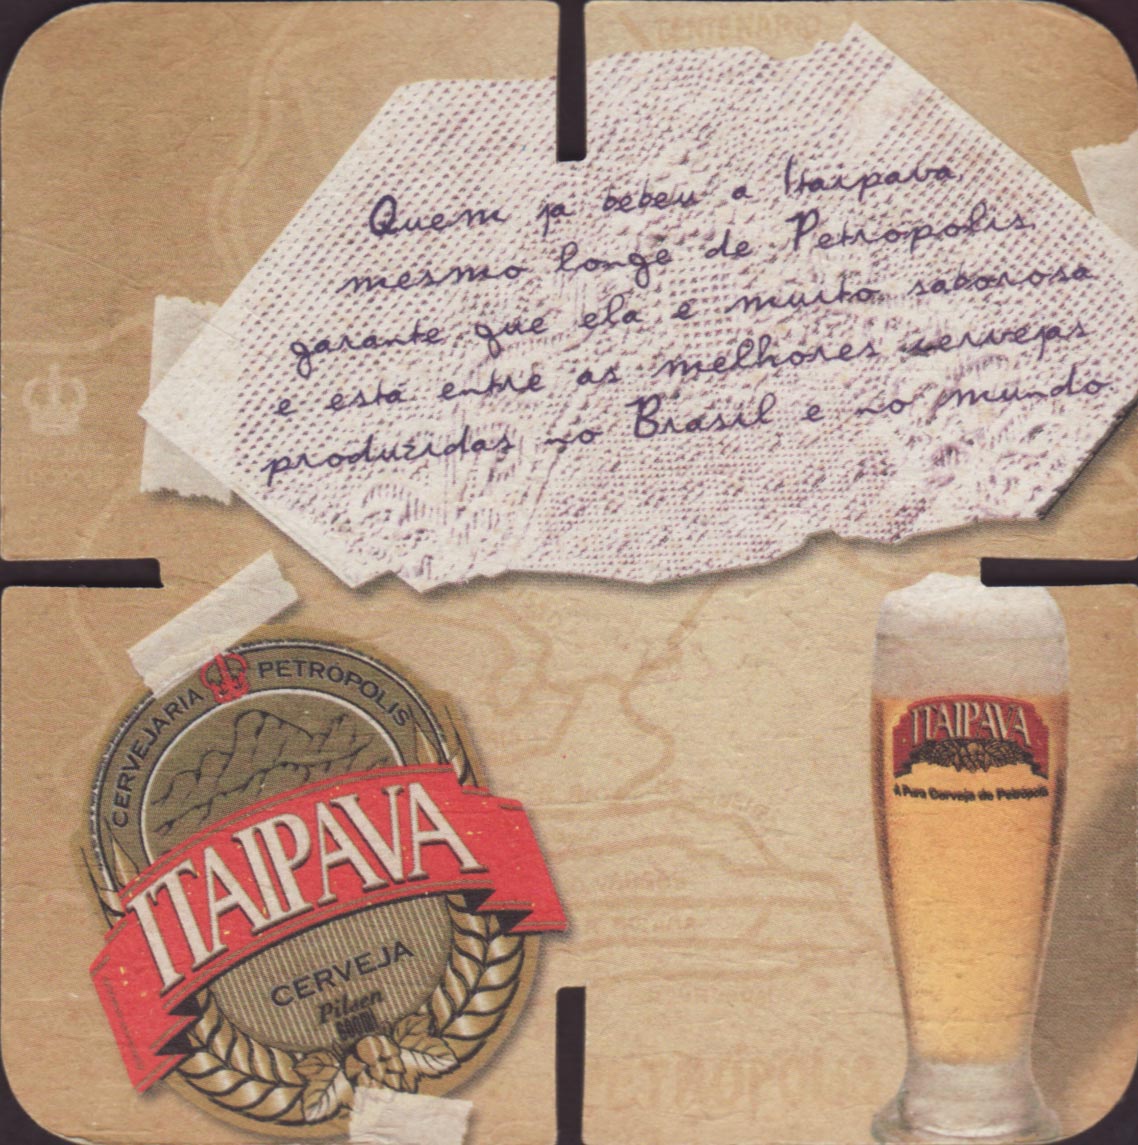 Quem ja bebeu a Itaipava,
mesmo longe de Petropolis,
garante que ela e muito saborosa
e esta entre as melhores cervejas
produzidas no Brasil e no mundo.
CERVEJARIA PETRÓPOLIS
ITAIPAVA
CERVEJA
Pilsen
ITAIPAVA
A Pura Cerveja de Petrópolis